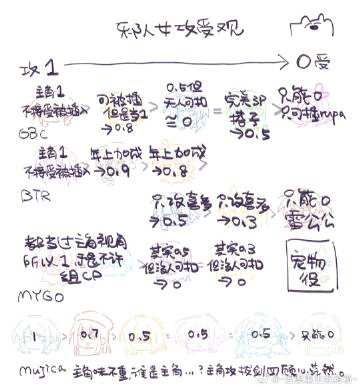 邦队女攻受观
攻1 → 0受
主角1
不接受被插入
可被插
但是当1
→0.8
0.5但
无人可扣
≅0
完美SP
搭子
→0.5
只能0
只可插rupa
GBC
主角1
不接受被插入
年上加成
→0.9
年上加成
→0.8
只攻喜多
→0.5
只攻喜多
→0.3
只能0
雷公公
BTR
都当过主角视角
所以1
组CP
其实0.5
但没人可扣
→0
其实0.3
但没人可扣
→0
宠物
役
MYGO
1 > 0.7 > 0.5 = 0.5 = 0.5 > 只能0
mujica 主角味不重,谁是主角…?主角攻按到四顾心茫然。